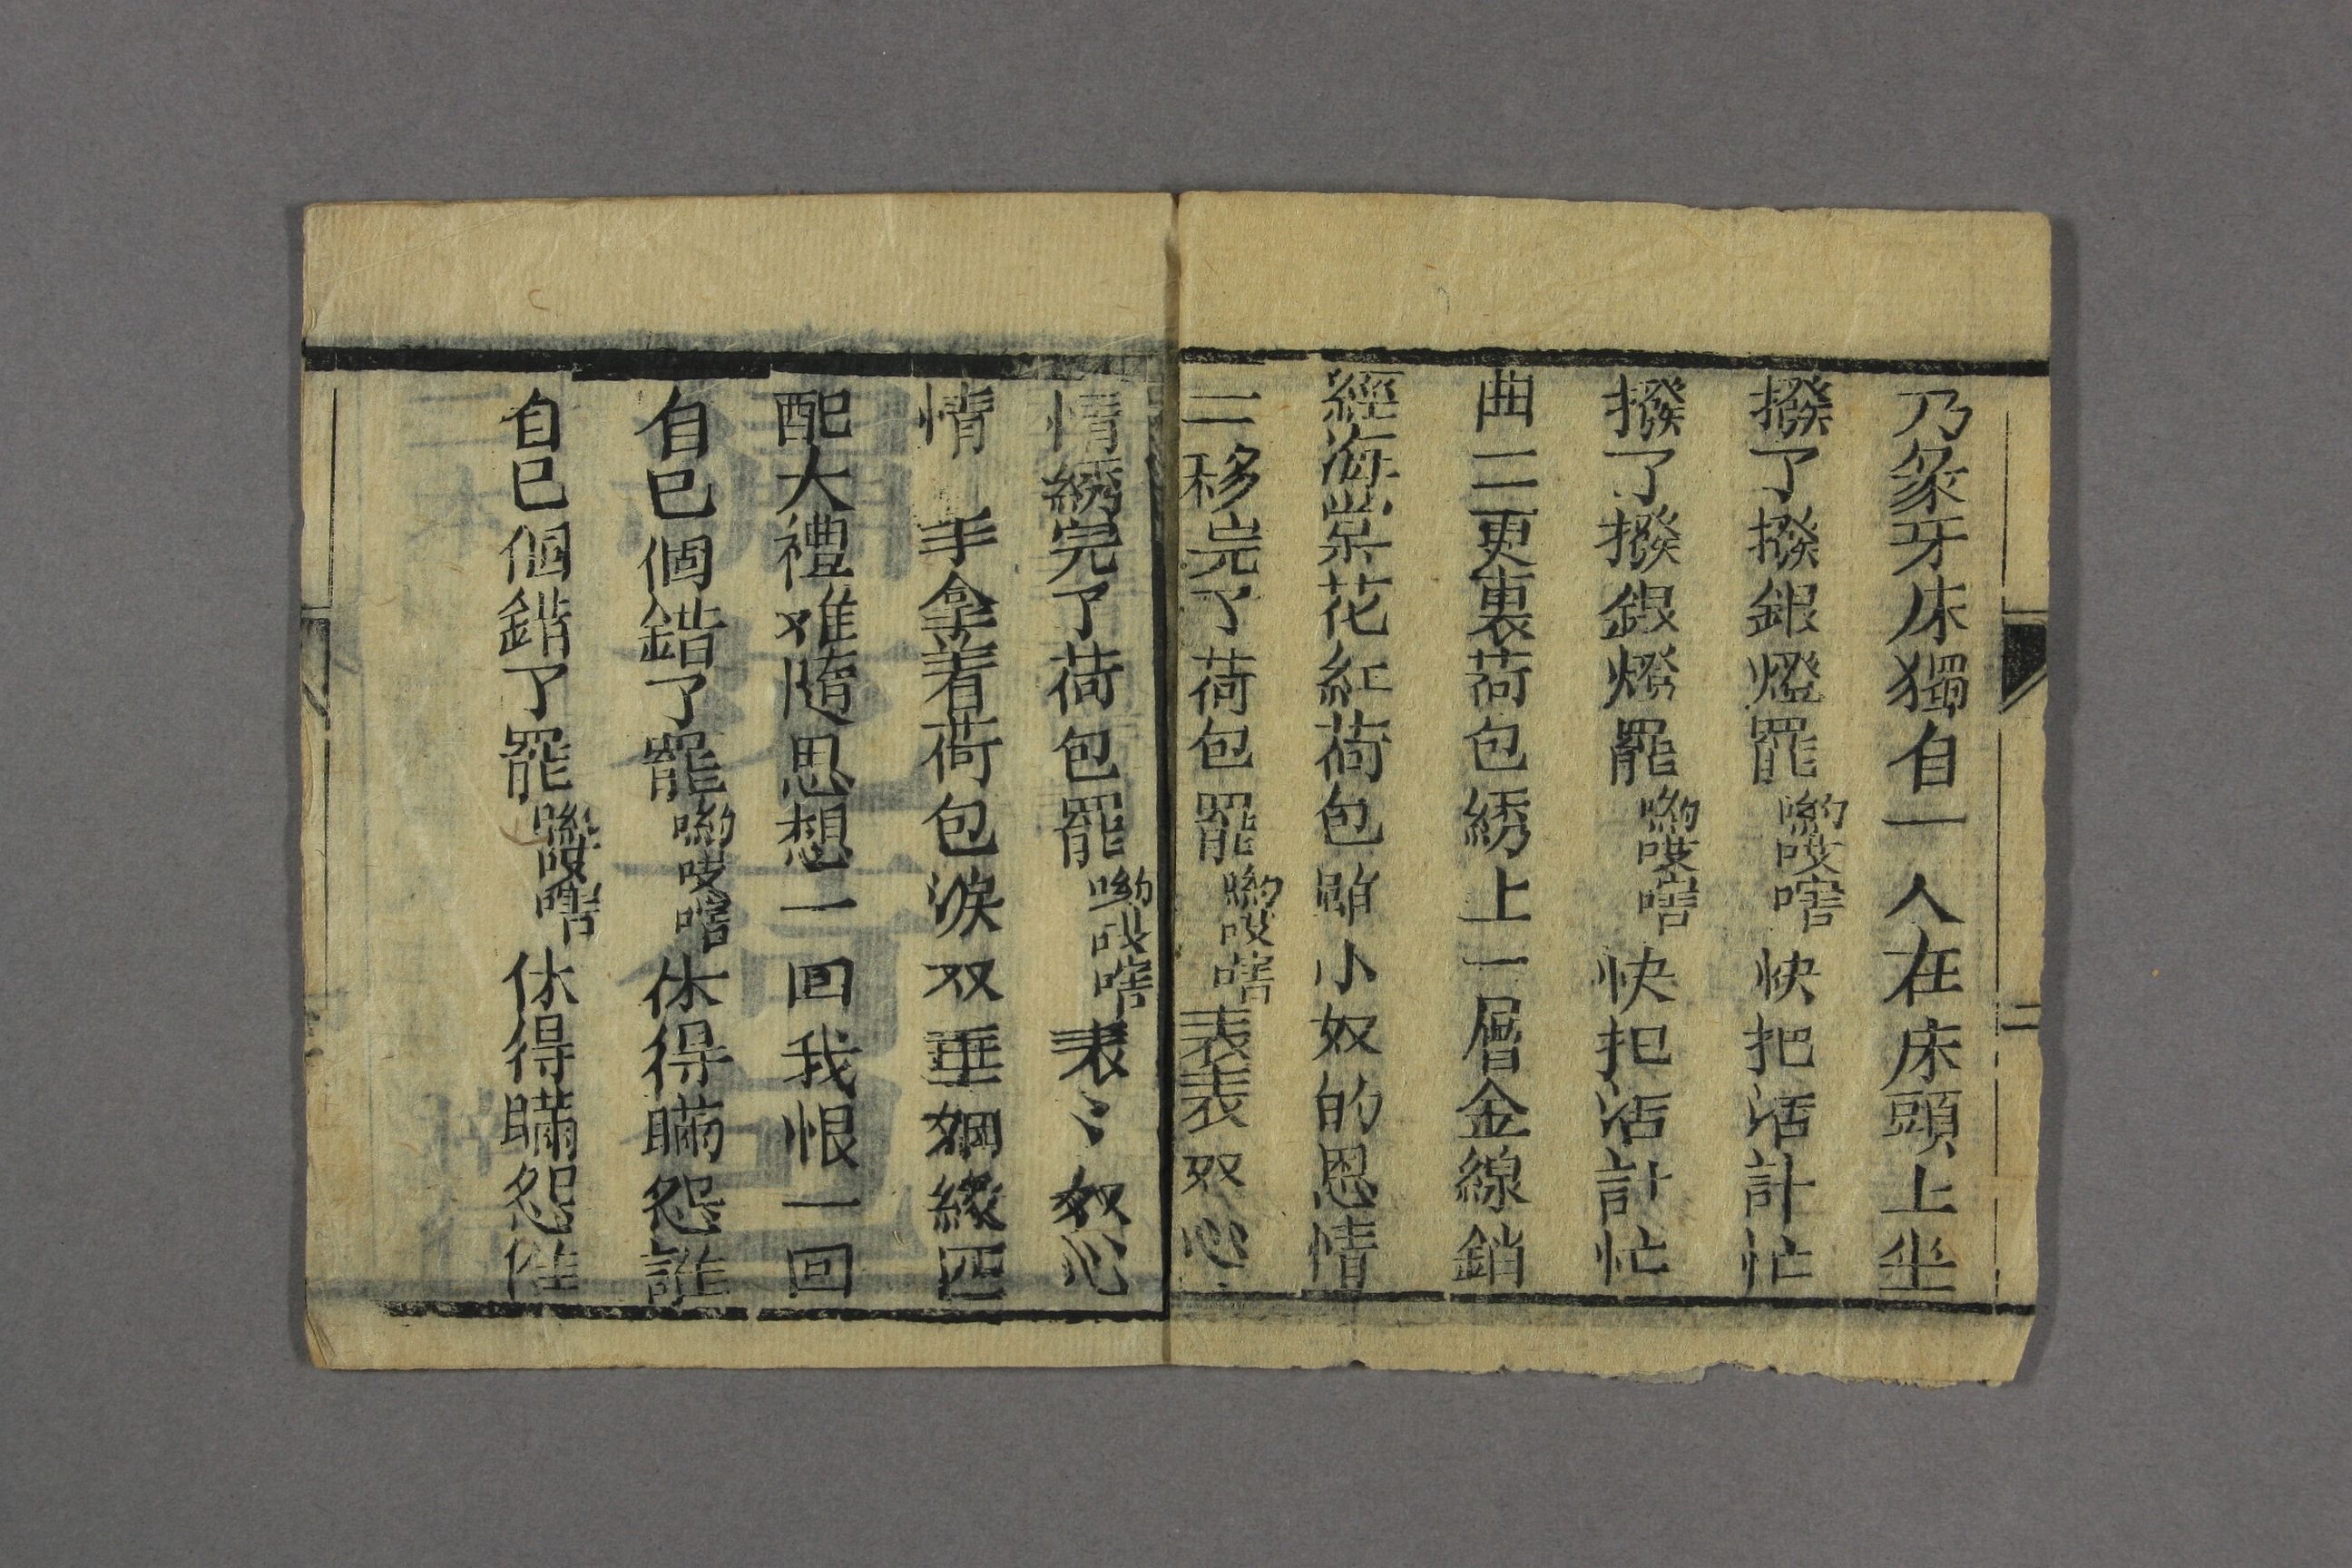 乃象牙床獨自一人在床頭上坐
撥了撥銀燈罷喲哎嗐快把活計忙
撥了撥銀燈罷喲哎嗐快把活計忙
曲三更裏荷包綉上一層金線銷
經海棠花紅荷包 小奴的恩情
二移完了荷包罷喲哎嗐表表奴心
情綉完了荷包罷喲哎嗐表〻奴心
情 手拿着荷包淚双垂姻緣匹
配大禮难隨思想一回我恨一回
自已個錯了罷喲哎嗐休得瞞怨誰
自已個錯了罷喲哎嗐休得瞞怨誰
二